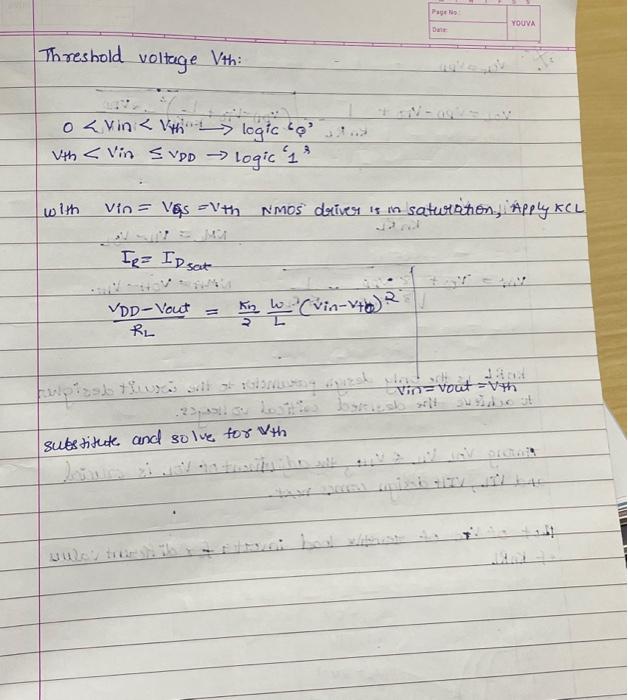 Page No:
YOUVA
Date:
Threshold voltage Vth:
0 < Vin < Vth → logic '0'
Vth < Vin ≤ VDD → logic '1'
with Vin = VGS = Vth NMOS driver is in saturation, Apply KCL
IR = IDsat
(VDD - Vout)/RL = kn/2 W/L (Vin - Vt0)² | Vin = Vout = Vth
substitute and solve for Vth